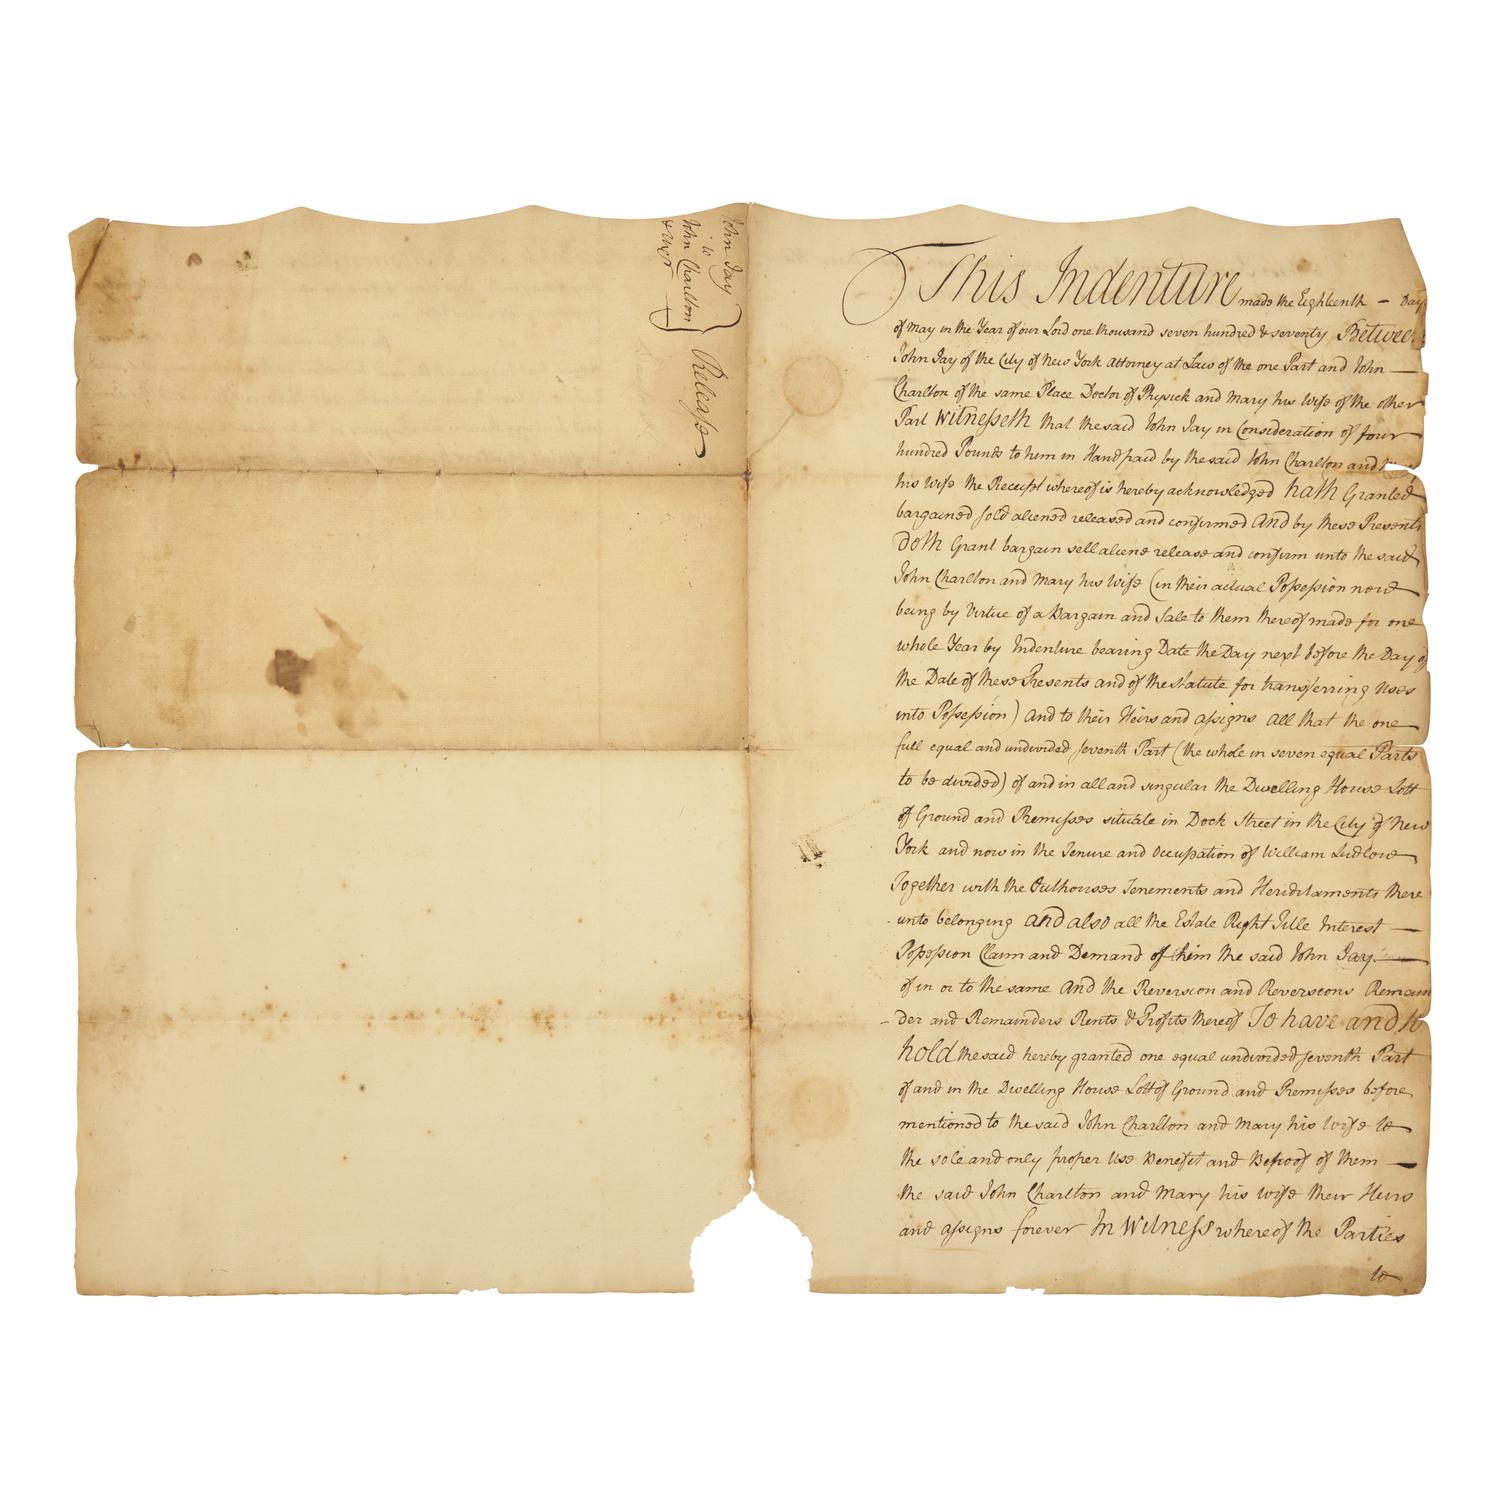 John Jay
to
John Charlton
& Uxor
Release
This Indenture made the Eighteenth – Day
of May in the Year of our Lord one thousand seven hundred & seventy Between
John Jay of the City of New York Attorney at Law of the one Part and John
Charlton of the same Place Doctor of Physick and Mary his Wife of the other
Part Witnesseth that the said John Jay in Consideration of four
hundred Pounds to him in Hand paid by the said John Charlton and
his Wife the Receipt whereof is hereby acknowledged hath Granted
bargained sold aliened released and confirmed And by these Presents
doth Grant bargain sell aliene release and confirm unto the said
John Charlton and Mary his Wife (in their actual Possession now
being by Virtue of a Bargain and Sale to them thereof made for one
whole Year by Indenture bearing Date the Day next before the Day of
the Date of these Presents and of the Statute for transferring Uses
into Possession) and to their Heirs and assigns all that the one
full equal and undivided seventh Part (the whole in seven equal Parts
to be divided) of and in all and singular the Dwelling House Lott
of Ground and Premisses situate in Dock Street in the City of New
York and now in the Tenure and Occupation of William Ludlow
Together with the Outhouses Tenements and Heriditaments there
unto belonging and also all the Estate Right Title Interest
Possession Claim and Demand of him the said John Jay
of in or to the same And the Reversion and Reversions Remain
der and Remainders Rents & Profits thereof To have and to
hold the said hereby granted one equal undivided seventh Part
of and in the Dwelling House Lott of Ground and Premisses before
mentioned to the said John Charlton and Mary his Wife to
the sole and only proper Use Benefit and Behoof of them
the said John Charlton and Mary his wife their Heirs
and assigns forever In Witness whereof the Parties
to